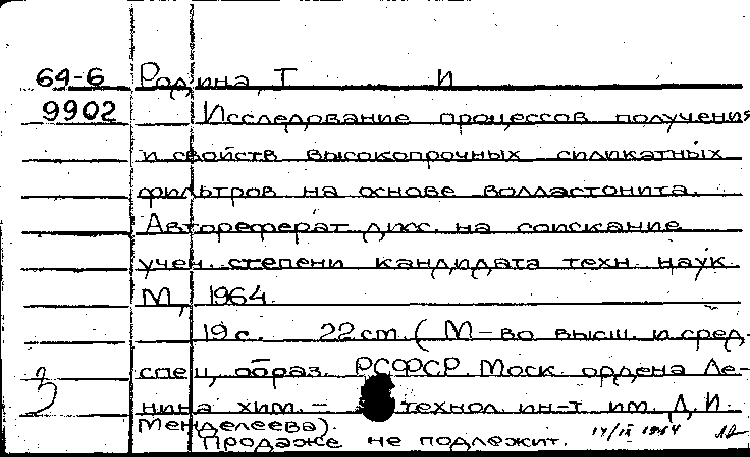 64-6 Родина, Т И
9902 Исследование процессов получения
и свойств высокопрочных силикатных
фильтров на основе волластонита.
Автореферат дисс. на соискание
учен. степени кандидата техн. наук.
М, 1964.
19 с. 22 cm. (М-во высш. и сред.
спец, образ. РСФСР. Моск. ордена Ле-
нина хим.- технол. ин-т им. Д. И.
Менделеева).
Продаже не подлежит.